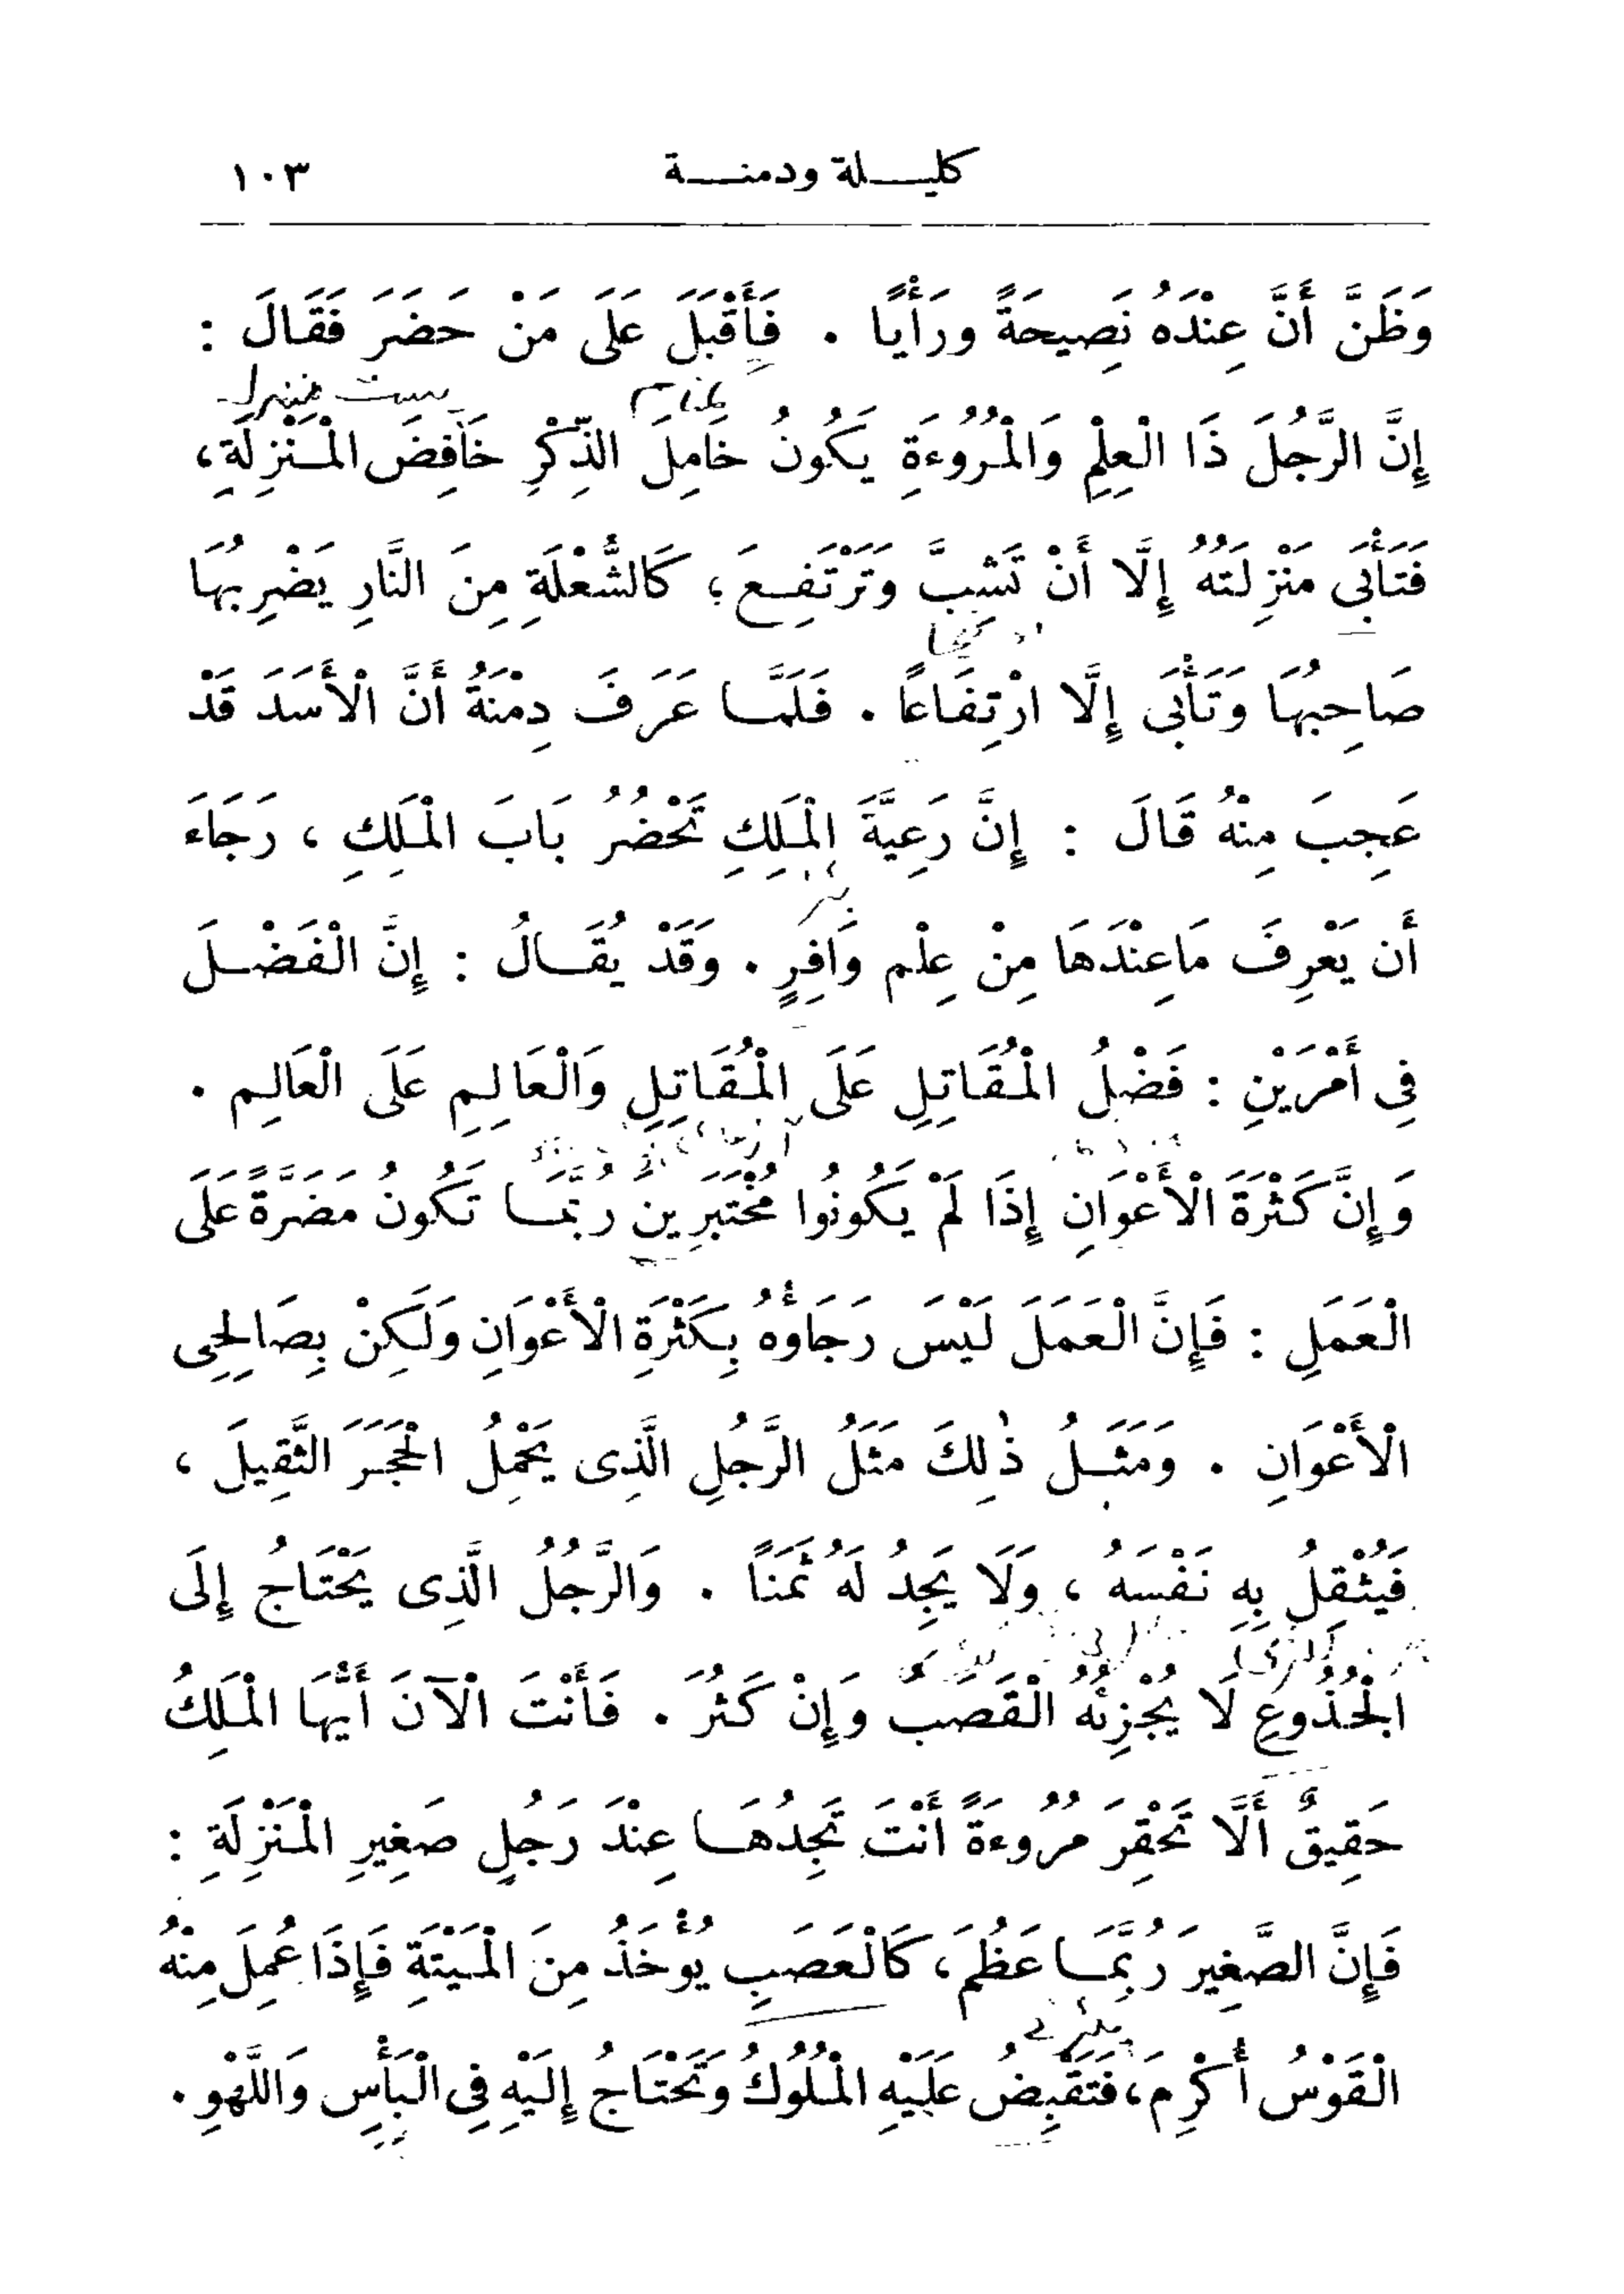 كليلة ودمنة ١٠٣
وَظَنَّ أَنَّ عِنْدَهُ نَصِيحَةً ورَأْيًا . فَأَقْبَلَ عَلَى مَنْ حَضَرَ فَقَالَ :
إِنَّ الرَّجُلَ ذَا الْعِلْمِ وَالْمُرُوءَةِ يَكُونُ خَامِلَ الذِّكْرِ خَافِضَ الْمَنْزِلَةِ،
فَتَأْبَى مَنْزِلَتُهُ إِلَّا أَنْ تَشِبَّ وَتَرْتَفِعَ ؛ كَالشُّعْلَةِ مِنَ النَّارِ يَضْرِبُهَا
صَاحِبُهَا وَتَأْبَى إِلَّا ارْتِفَاعًا . فَلَمَّا عَرَفَ دِمْنَةُ أَنَّ الْأَسَدَ قَدْ
عَجِبَ مِنْهُ قَالَ : إِنَّ رَعِيَّةَ الْمَلِكِ تَحْضُرُ بَابَ الْمَلِكِ ، رَجَاءَ
أَن يَعْرِفَ مَاعِنْدَهَا مِنْ عِلْمٍ وَافِرٍ . وَقَدْ يُقَالُ : إِنَّ الْفَضْلَ
فِى أَمْرَيْنِ : فَضْلُ الْمُقَاتِلِ عَلَى الْمُقَاتِلِ وَالْعَالِمِ عَلَى الْعَالِمِ .
وَإِنَّ كَثْرَةَ الْأَعْوَانِ إِذَا لَمْ يَكُونُوا مُخْتَبَرِينَ رُبَّمَا تَكُونُ مَضَرَّةً عَلَى
الْعَمَلِ : فَإِنَّ الْعَمَلَ لَيْسَ رَجَاؤُهُ بِكَثْرَةِ الْأَعْوَانِ وَلَكِنْ بِصَالِحِى
الْأَعْوَانِ . وَمَثَلُ ذٰلِكَ مَثَلُ الرَّجُلِ الَّذِى يَحْمِلُ الْحَجَرَ الثَّقِيلَ ،
فَيُثْقِلُ بِهِ نَفْسَهُ ، وَلَا يَجِدُ لَهُ ثَمَنًا . وَالرَّجُلُ الَّذِى يَحْتَاجُ إِلَى
الْجُذُوعِ لَا يُجْزِئُهُ الْقَصَبُ وَإِنْ كَثُرَ . فَأَنْتَ الْآنَ أَيُّهَا الْمَلِكُ
حَقِيقٌ أَلَّا تَحْقِرَ مُرُوءَةً أَنْتَ تَجِدُهَا عِنْدَ رَجُلٍ صَغِيرِ الْمَنْزِلَةِ :
فَإِنَّ الصَّغِيرَ رُبَّمَا عَظُمَ، كَالْعَصَبِ يُؤْخَذُ مِنَ الْمَيْتَةِ فَإِذَا عُمِلَ مِنْهُ
الْقَوْسُ أُكْرِمَ، فَتَقْبِضُ عَلَيْهِ الْمُلُوكُ وَتَحْتَاجُ إِلَيْهِ فِى الْبَأْسِ وَاللَّهْوِ .